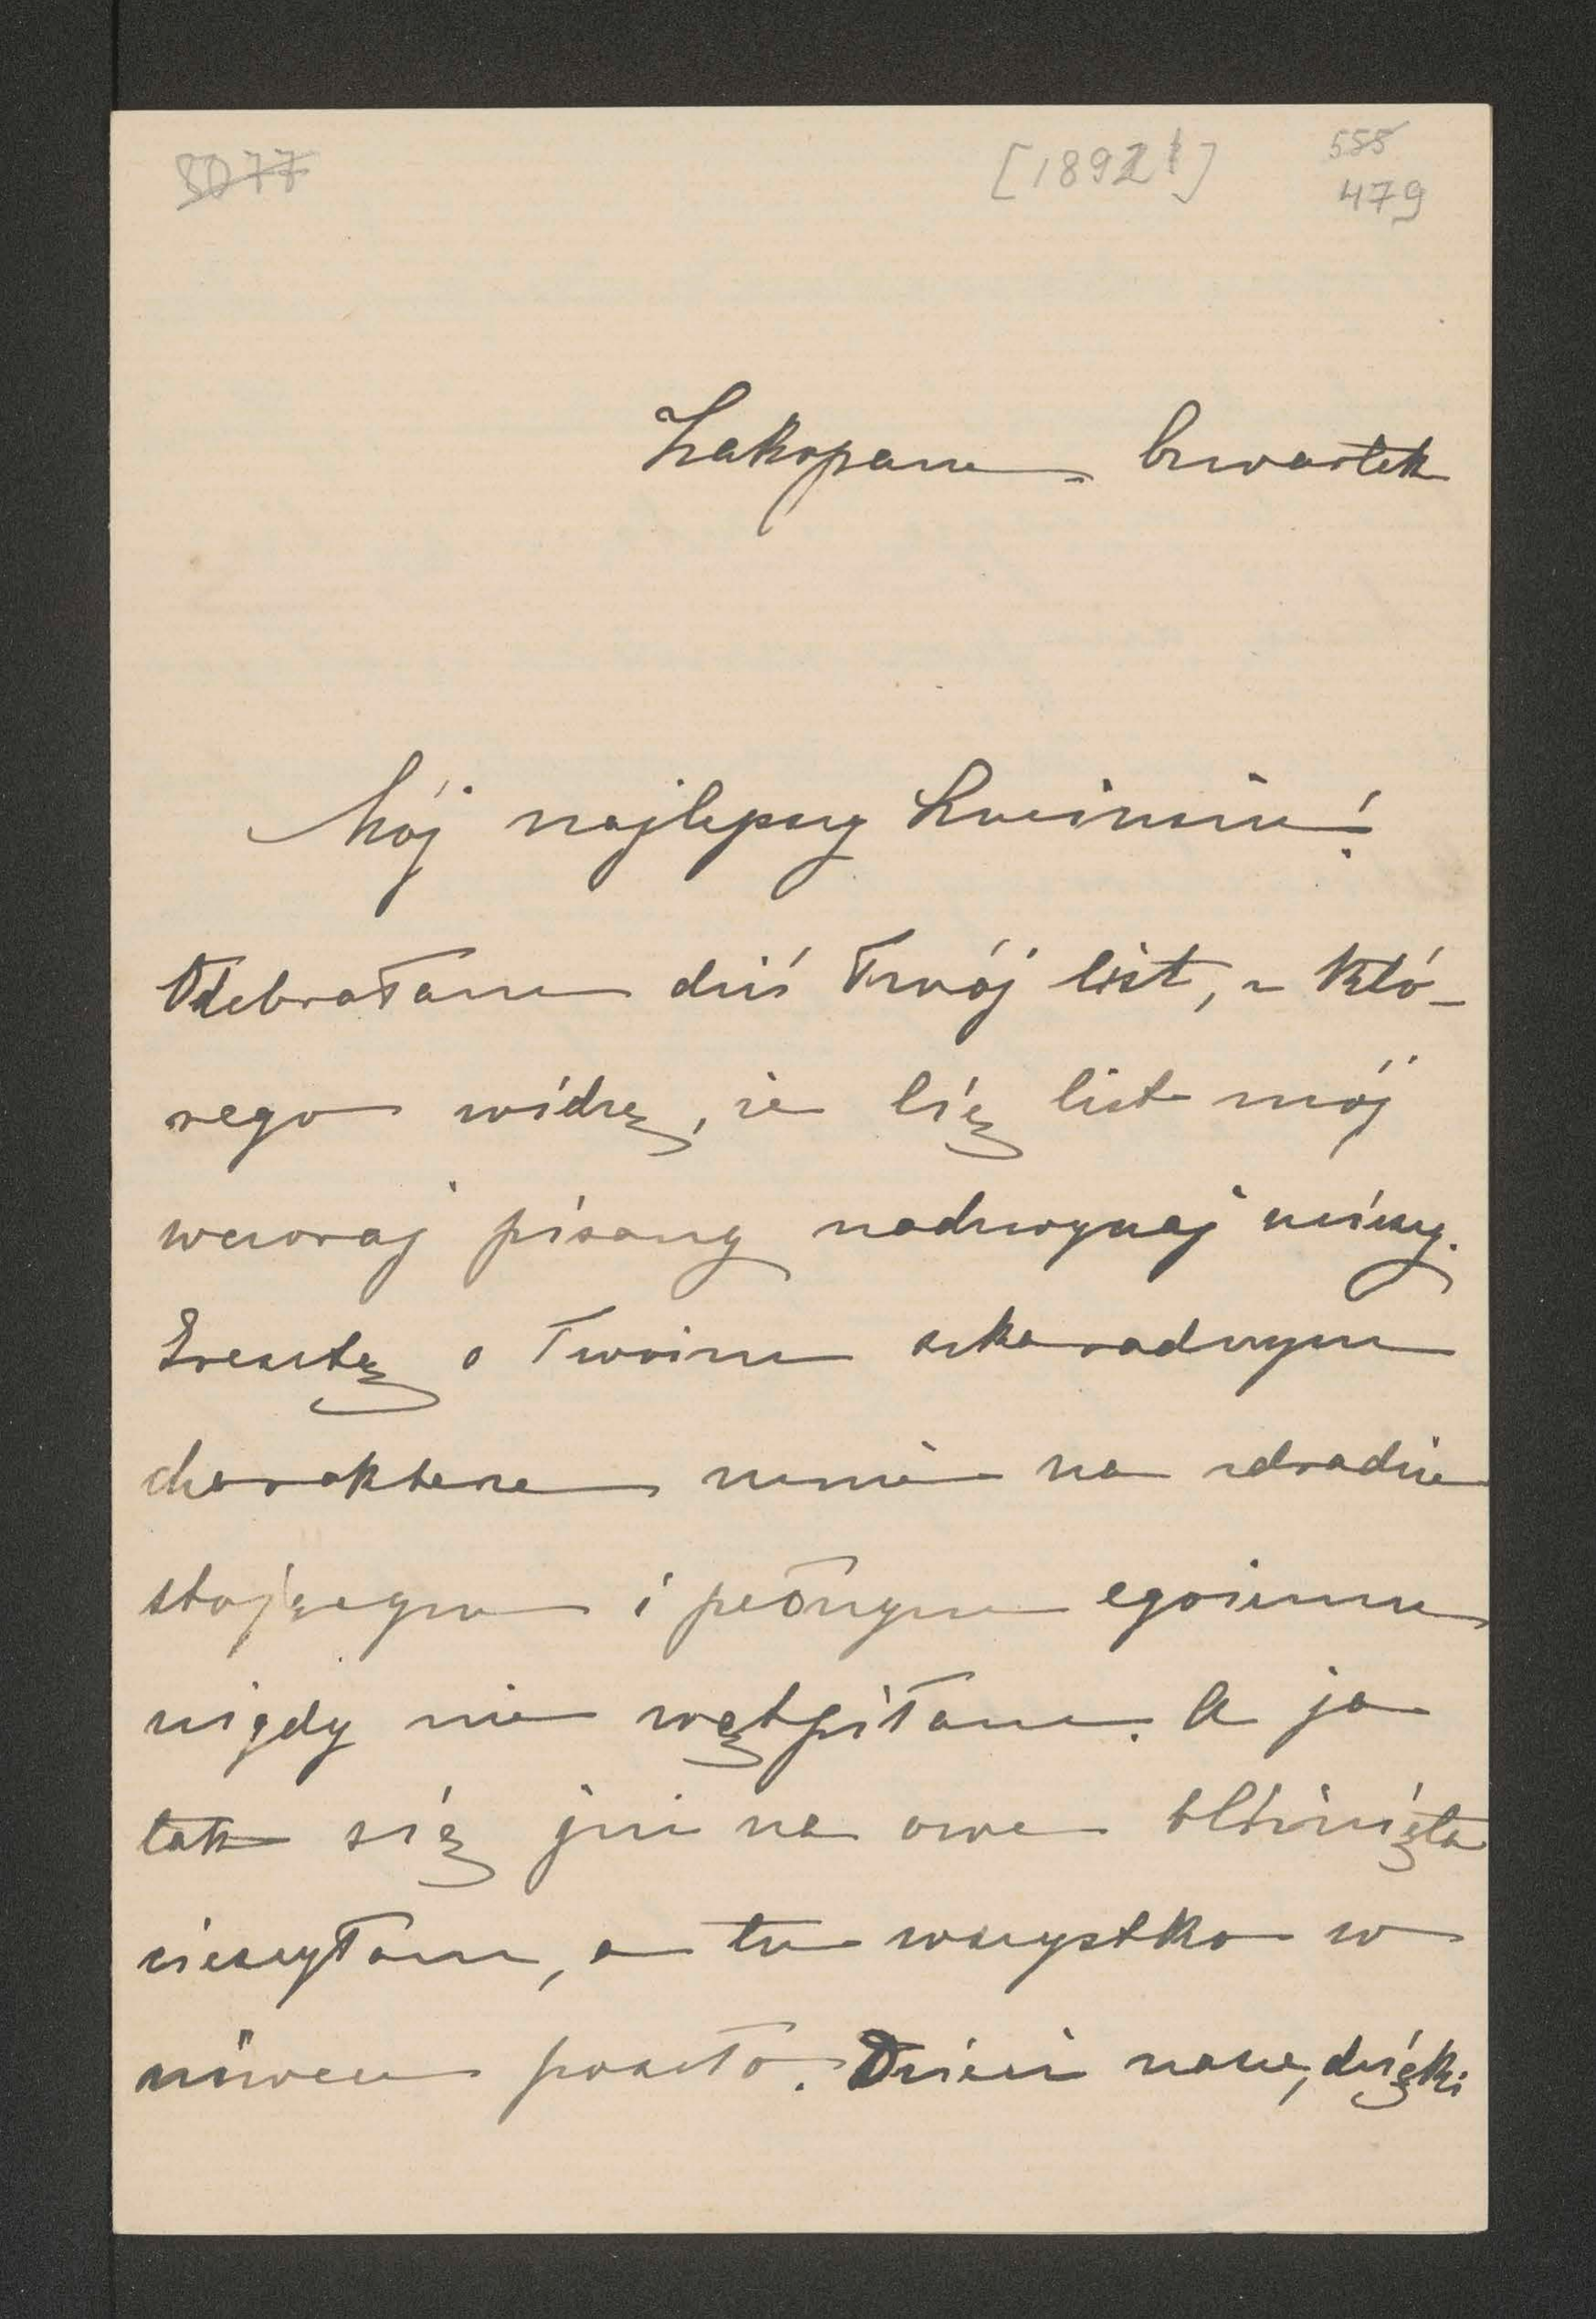 3077
[1892 1]
555
479
Zakopane Czwartek
Mój najlepszy Lucimciu!
Odebrałam dziś Twój list, z któ-
rego widzę, że Cię list mój
wczoraj pisany nadzwyczaj ucieszy.
Zresztą o Twoim szkaradnym
charakterze na zdradzie
stojącym i pełnym egoizmu
nigdy nie wątpiłam. A ja
tak się już na owe bliźnięta
cieszyłam, a tu wszystko w
niwecz poszło. Dzieci nasze, dzięki